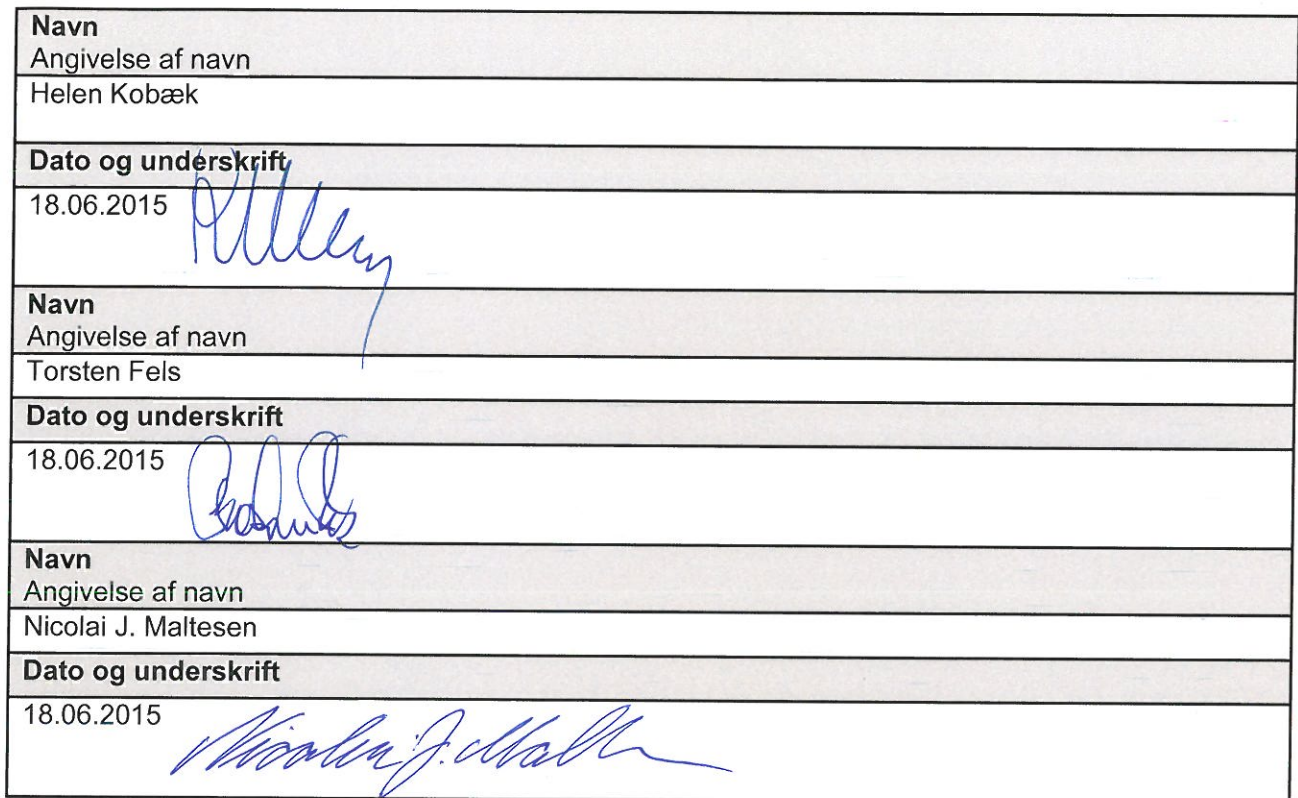 Navn
Angivelse af navn
Helen Kobæk
Dato og underskrift
18.06.2015
Navn
Angivelse af navn
Torsten Fels
Dato og underskrift
18.06.2015
Navn
Angivelse af navn
Nicolai J. Maltesen
Dato og underskrift
18.06.2015